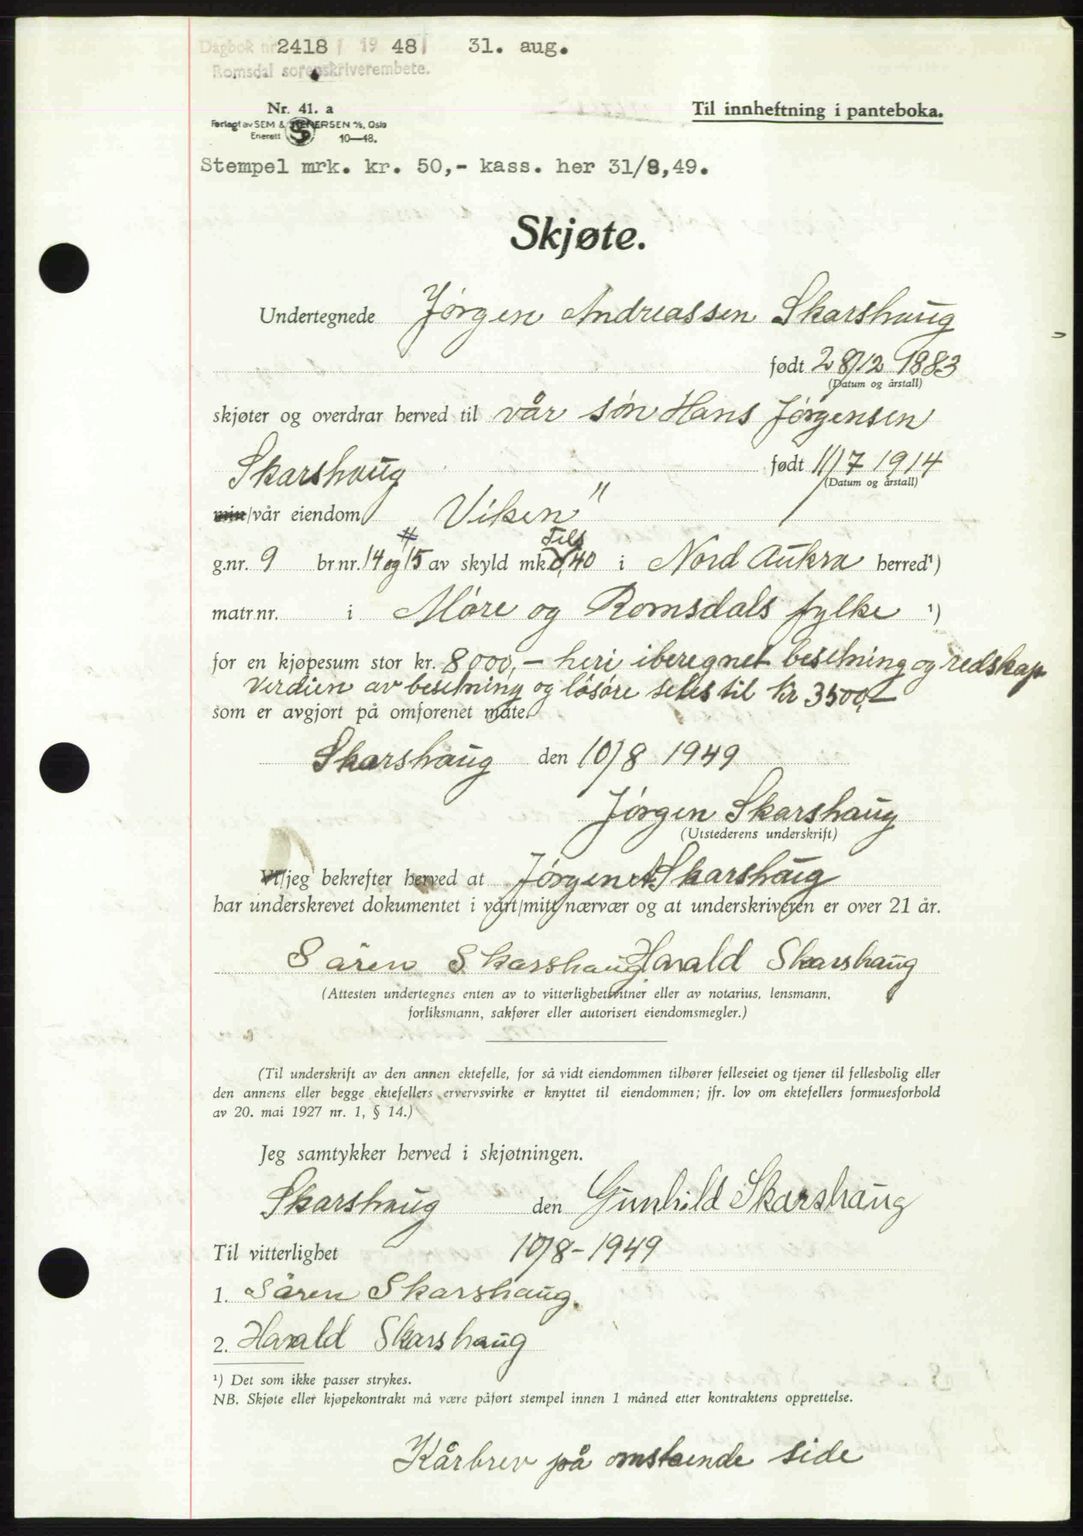 Dagbok nr. 2418 / 1948 / 31. aug.
Romsdal sorenskriverembete.
Nr. 41. a
Til innheftning i panteboka.
Forlagt av SEM & STENERSEN A/S, Oslo
Enerett 10—48.
Stempel mrk. kr. 50,- kass. her 31/8,49.
Skjøte.
Undertegnede Jørgen Andreassen Skarshaug
født 28/12 1883
(Datum og årstall)
skjøter og overdrar herved til vår søn Hans Jørgensen
Skarshaug født 11/7 1914
(Datum og årstall)
min/vår eiendom Viken"
g.nr. 9 br.nr. 14 og 15 av skyld mk 0,40 i Nord Aukra herred¹)
matr.nr. i Møre og Romsdals fylke ¹)
for en kjøpesum stor kr. 8000,- heri iberegnet besetning og redskap
Verdien av besetning og løsøre settes til kr 3500,-
som er avgjort på omforenet måte.
Skarshaug den 10/8 1949
Jørgen Skarshaug
(Utstederens underskrift)
Vi/jeg bekrefter herved at Jørgen A Skarshaug
har underskrevet dokumentet i vårt/mitt nærvær og at underskriveren er over 21 år.
Sören Skarshaug Harald Skarshaug
(Attesten undertegnes enten av to vitterlighetsvitner eller av notarius, lensmann,
forliksmann, sakfører eller autorisert eiendomsmegler.)
(Til underskrift av den annen ektefelle, for så vidt eiendommen tilhører felleseiet og tjener til fellesbolig eller
den annens eller begge ektefellers ervervsvirke er knyttet til eiendommen; jfr. lov om ektefellers formuesforhold
av 20. mai 1927 nr. 1, § 14.)
Jeg samtykker herved i skjøtningen.
Skarshaug den Gunhild Skarshaug
Til vitterlighet 10/8-1949
1. Sören Skarshaug.
2. Harald Skarshaug
¹) Det som ikke passer strykes.
NB. Skjøte eller kjøpekontrakt må være påført stempel innen 1 måned etter kontraktens opprettelse.
Kårbrev på omstående side